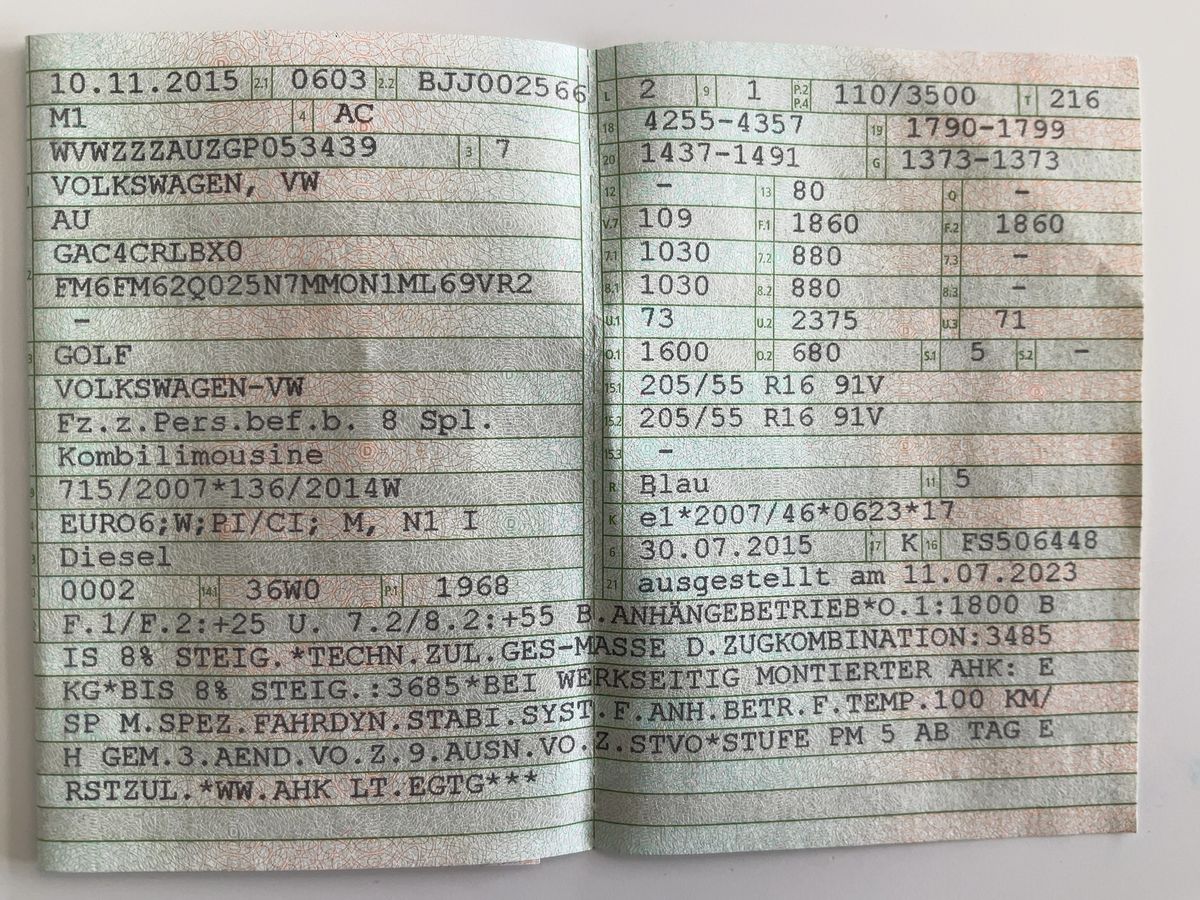 10.11.2015 2.1 0603 2.2 BJJ002566
M1 4 AC
WVWZZZAUZGP053439 3 7
VOLKSWAGEN, VW
AU
GAC4CRLBX0
FM6FM62Q025N7MMON1ML69VR2
–
GOLF
VOLKSWAGEN-VW
Fz.z.Pers.bef.b. 8 Spl.
Kombilimousine
715/2007*136/2014W
EURO6;W;PI/CI; M, N1 I
Diesel
0002 14.1 36W0 P.1 1968
L 2 9 1 P.2 P.4 110/3500 T 216
18 4255-4357 19 1790-1799
20 1437-1491 G 1373-1373
12 – 13 80 Q –
V.7 109 F.1 1860 F.2 1860
7.1 1030 7.2 880 7.3 –
8.1 1030 8.2 880 8.3 –
U.1 73 U.2 2375 U.3 71
O.1 1600 O.2 680 S.1 5 S.2 –
15.1 205/55 R16 91V
15.2 205/55 R16 91V
15.3 –
R Blau 11 5
K e1*2007/46*0623*17
6 30.07.2015 17 K 16 FS506448
21 ausgestellt am 11.07.2023
F.1/F.2:+25 U. 7.2/8.2:+55 B.ANHÄNGEBETRIEB*O.1:1800 B
IS 8% STEIG.*TECHN.ZUL.GES-MASSE D.ZUGKOMBINATION:3485
KG*BIS 8% STEIG.:3685*BEI WERKSEITIG MONTIERTER AHK: E
SP M.SPEZ.FAHRDYN.STABI.SYST.F.ANH.BETR.F.TEMP.100 KM/
H GEM.3.AEND.VO.Z.9.AUSN.VO.Z.STVO*STUFE PM 5 AB TAG E
RSTZUL.*WW.AHK LT.EGTG***